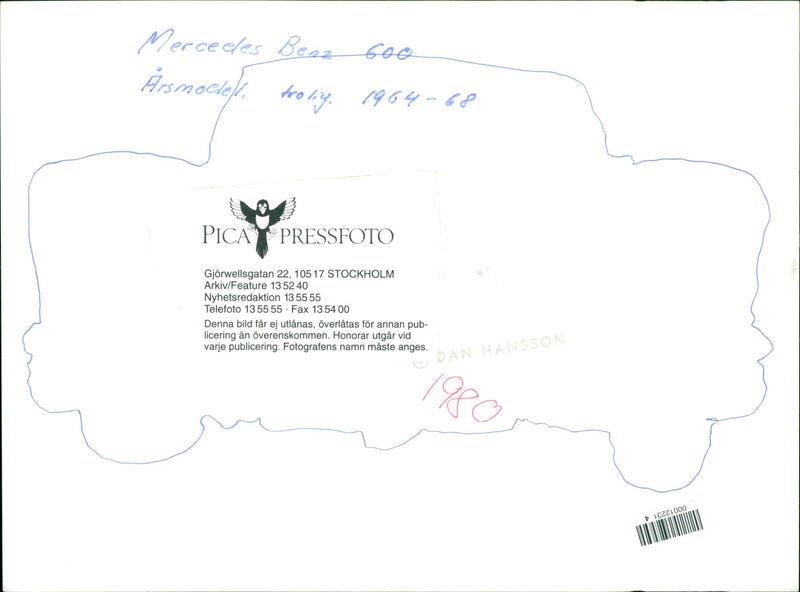 Mercedes Benz 600
Årsmodel. trolig. 1964-68
PICA PRESSFOTO
Gjörwellsgatan 22, 105 17 STOCKHOLM
Arkiv/Feature 13 52 40
Nyhetsredaktion 13 55 55
Telefoto 13 55 55 · Fax 13 54 00
Denna bild får ej utlånas, överlåtas för annan pub-
licering än överenskommen. Honorar utgår vid
varje publicering. Fotografens namn måste anges.
© DAN HANSSON
1980
00012231 4